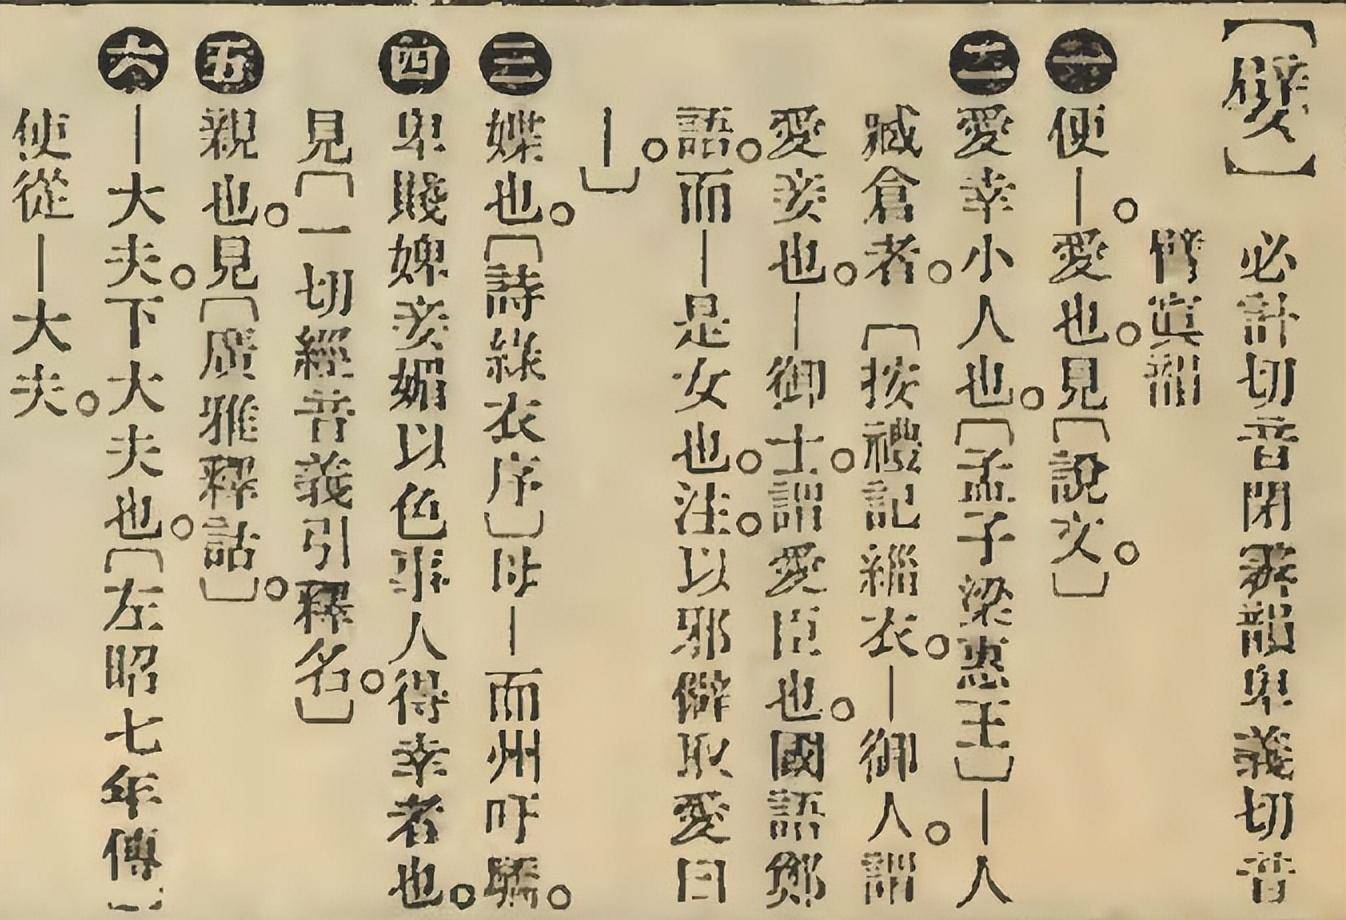 【嬖】必計切音閉霽韻卑義切音
臂寘韻
㊀便—。愛也。見〔說文〕。
㊁愛幸小人也。〔孟子梁惠王〕—人
臧倉者。〔按禮記緇衣。—御人。謂
愛妾也。—御士。謂愛臣也。國語鄭
語。而—是女也。注。以邪僻取愛曰
—。〕
㊂媟也。〔詩綠衣序〕母—而州吁驕。
㊃卑賤婢妾媚以色事人得幸者也。
見〔一切經音義引釋名〕。
㊄親也。見〔廣雅釋詁〕。
㊅—大夫。下大夫也。〔左昭七年傳〕
使從—大夫。